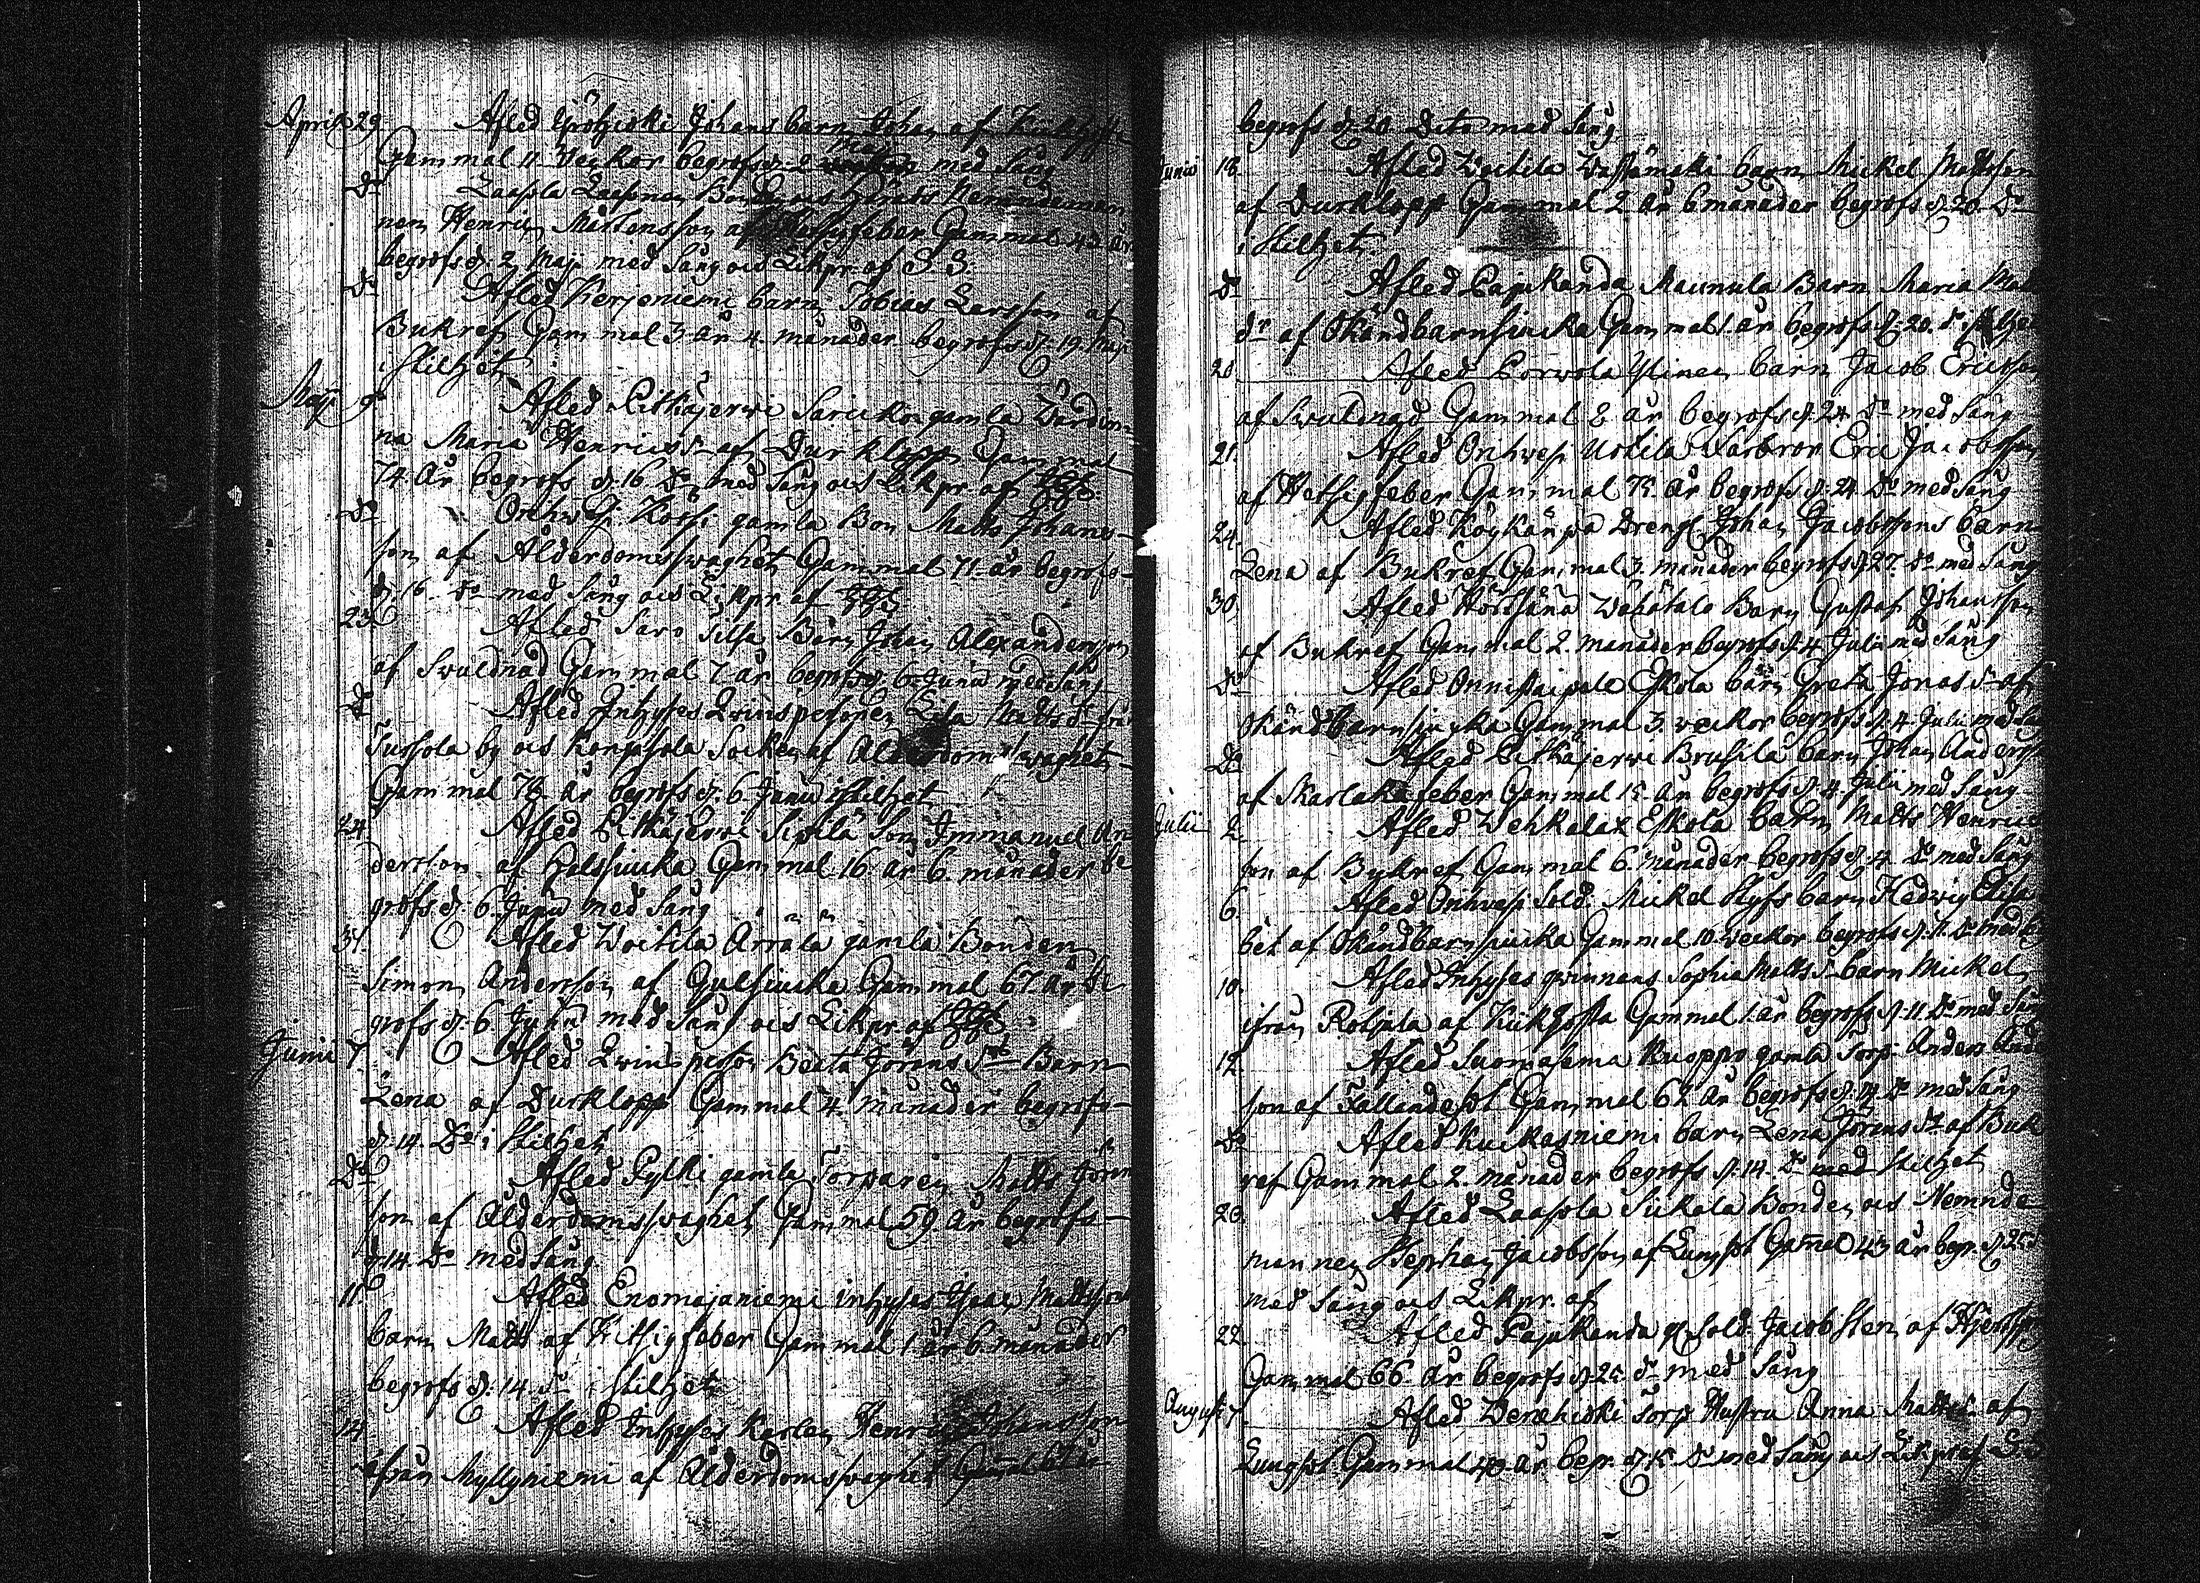 April 29 Afled Johans barn Johan af Kikhosta
Gammal 11 Weckor begrofs d. 2 Maji med Sång
Do Laasola Bonden ocs Härads Nemndeman
nen Henric Mårtensson af Gammal 43 år
begrofs d. 2 Maji med Sång ocs Likpr. af S. S.
Do Afled Kerjeniemi barn Tobias Larsson af
Bukref Gammal 3 år 4. månader begrofs d. 19 Maji
i stilhet
Maji 9 Afled Pitkäjerwi Sarcko gamla Wärdin
na Maria Henricsdr af Durklopp Gammal
74. År begrofs d. 16 Do med Sång ocs Likpr. af
Do Orihwesi gamla Bon Matts Johans-
son af Ålderdomsswaghet Gammal 71. år begrofs
d. 16. Do med Sång ocs Likpr. af
23. Afled Saro Barn Johan Alexandersson
af Swuldnad Gammal 7 år begrofs d. 6 Junii med Sång
Do Afled Inhyses Qwinspersonen Lisa Matts dr från
by ocs Socken af Ålderdomsswaghet
Gammal 78 år begrofs d. 6 Junii i stilhet
24. Afled Pitkäjerwi Sipilä Son Immanuel An
dersson af Halssiucka Gammal 16 år 6. månader be
grofs d. 6 Junii med Sång
31. Afled Woitila Arrola gamla Bonden
Simon Andersson af Gulsiucka Gammal 67. år be
grofs d. 6. Junii med Sång ocs Likpr. af
Junii 7. Afled Qwinsperson Beata Jörans dr Barn
Lena af Durklopp Gammal 4. månader begrofs
d. 14. Do i stilhet
Do Afled Pylki gamla Torparen Matts Jöran
son af Ålderdomsswaghet Gammal 59 år begrofs
d. 14. Do med Sång
11. Afled Enomajaniemi inhyses Isaac Mattsson
barn Matts af Hitsigfeber Gammal 1. år 6. månader
begrofs d. 14. Do i stilhet
14. Afled Inhyses Karlen Henric Johansson
ifrån Myllyniemi af Ålderdomsswaghet Gammal
begrofs d. 20. Dito med Sång
Junii 18. Afled Woitila barn Mickel Mattsson
af Durklopp Gammal 2. år 6 månader begrofs d. 20. Do
i Stilhet.
Do Afled Pajukanda Maunula Barn Maria
dr af Okändbarnsiucka Gammal 1. år begrofs d. 20. Do i stilhet
20. Afled Porwola Ylinen barn Jacob Ericsson
af Swuldnad Gammal 2 år begrofs d. 24 Do med Sång
21. Afled Orihwesi Uotila Farbror Eric Jacobsson
af Hetsigfeber Gammal år begrofs d. 24 Do med Sång
24. Afled Köykänpä Dreng Johan Jacobssons barn
Lena af Bukref Gammal 3. månader begrofs d. 27. Do med Sång
30. Afled Wähätalo Barn Gustaf Johansson
af Bukref Gammal 2. månader begrofs d. 4 Julii med Sång
Do Afled Onnistaipale Eskola barn Greta Jonas dr af
Okändbarnsiucka Gammal 3. weckor begrofs d. 4. Julii med Sång
Do Afled Pitkäjerwi Brusila barn Johan Andersson
af Skarlakafeber Gammal 15. år begrofs d. 4. Julii med Sång
Julii 2. Afled Wehkalax Eskola barn Matts Henrics
son af Bukref Gammal 6. månader begrofs d. 4 Do med Sång
6. Afled Orihwesi Sold. Mickel barn Hedwig Elisa
bet af Okändbarnsiucka Gammal 10 weckor begrofs d. 11. Do med
10. Afled Inhyses qwinnans Sophia Matts dr barn Mickel
ifrån af Kikhosta Gammal 1. år begrofs d. 11. Do med Sång
12. Afled Suomasema Kuoppo gamla Torp. Anders
son af Fallandesot Gammal 62. år begrofs d. Do med Sång
Do Afled Kuikasniemi barn Lena Jörans dr af Buk
ref Gammal 2. månader begrofs d. 14. Do med stilhet
20. Afled Laasola Sikala Bonden ocs Nemnde
mannen Stephan Jacobsson af Lungsot Gamal 43 år begr. d. 25
med Sång ocs Likpr. af
22. Afled Pajukanda Sold. Jacob Sten af
Gammal 66. år begrofs d. 25. Do med Sång
August 7. Afled Torp. Hustru Anna Matts dr af
Lungsot Gammal år begr. d. Do med Sång ocs Likpr. af